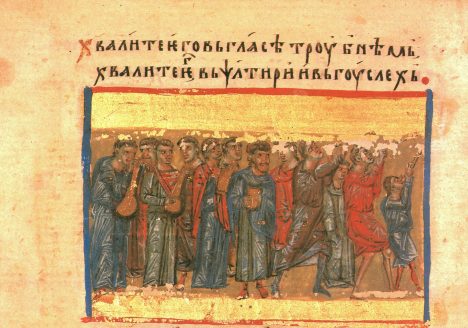 хвалите ѥго вь гласѣ троубнѣмь
хвалите ѥⷢ вь ѱлтири и вь гоуслехь.